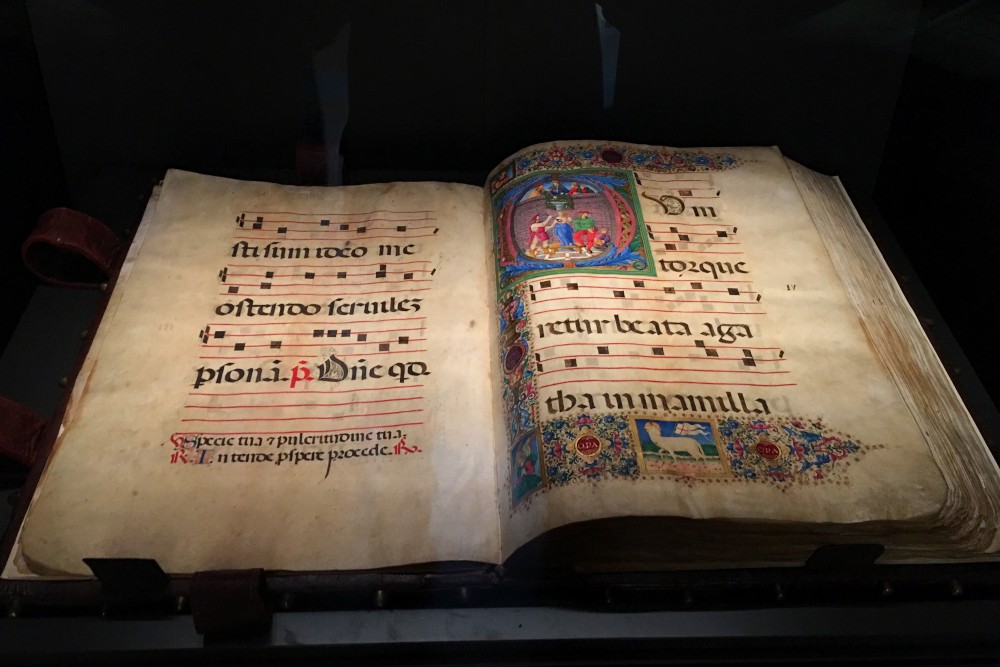 sti sum ideo me
ostendo seruilez
psonā. p̄. Dn̄e qd
V. Specie tua ⁊ pulcritudine tua.
R. Intende, pspere procede. R.
DVm
torque
retur beata aga
tha in mamilla
OPA OPA